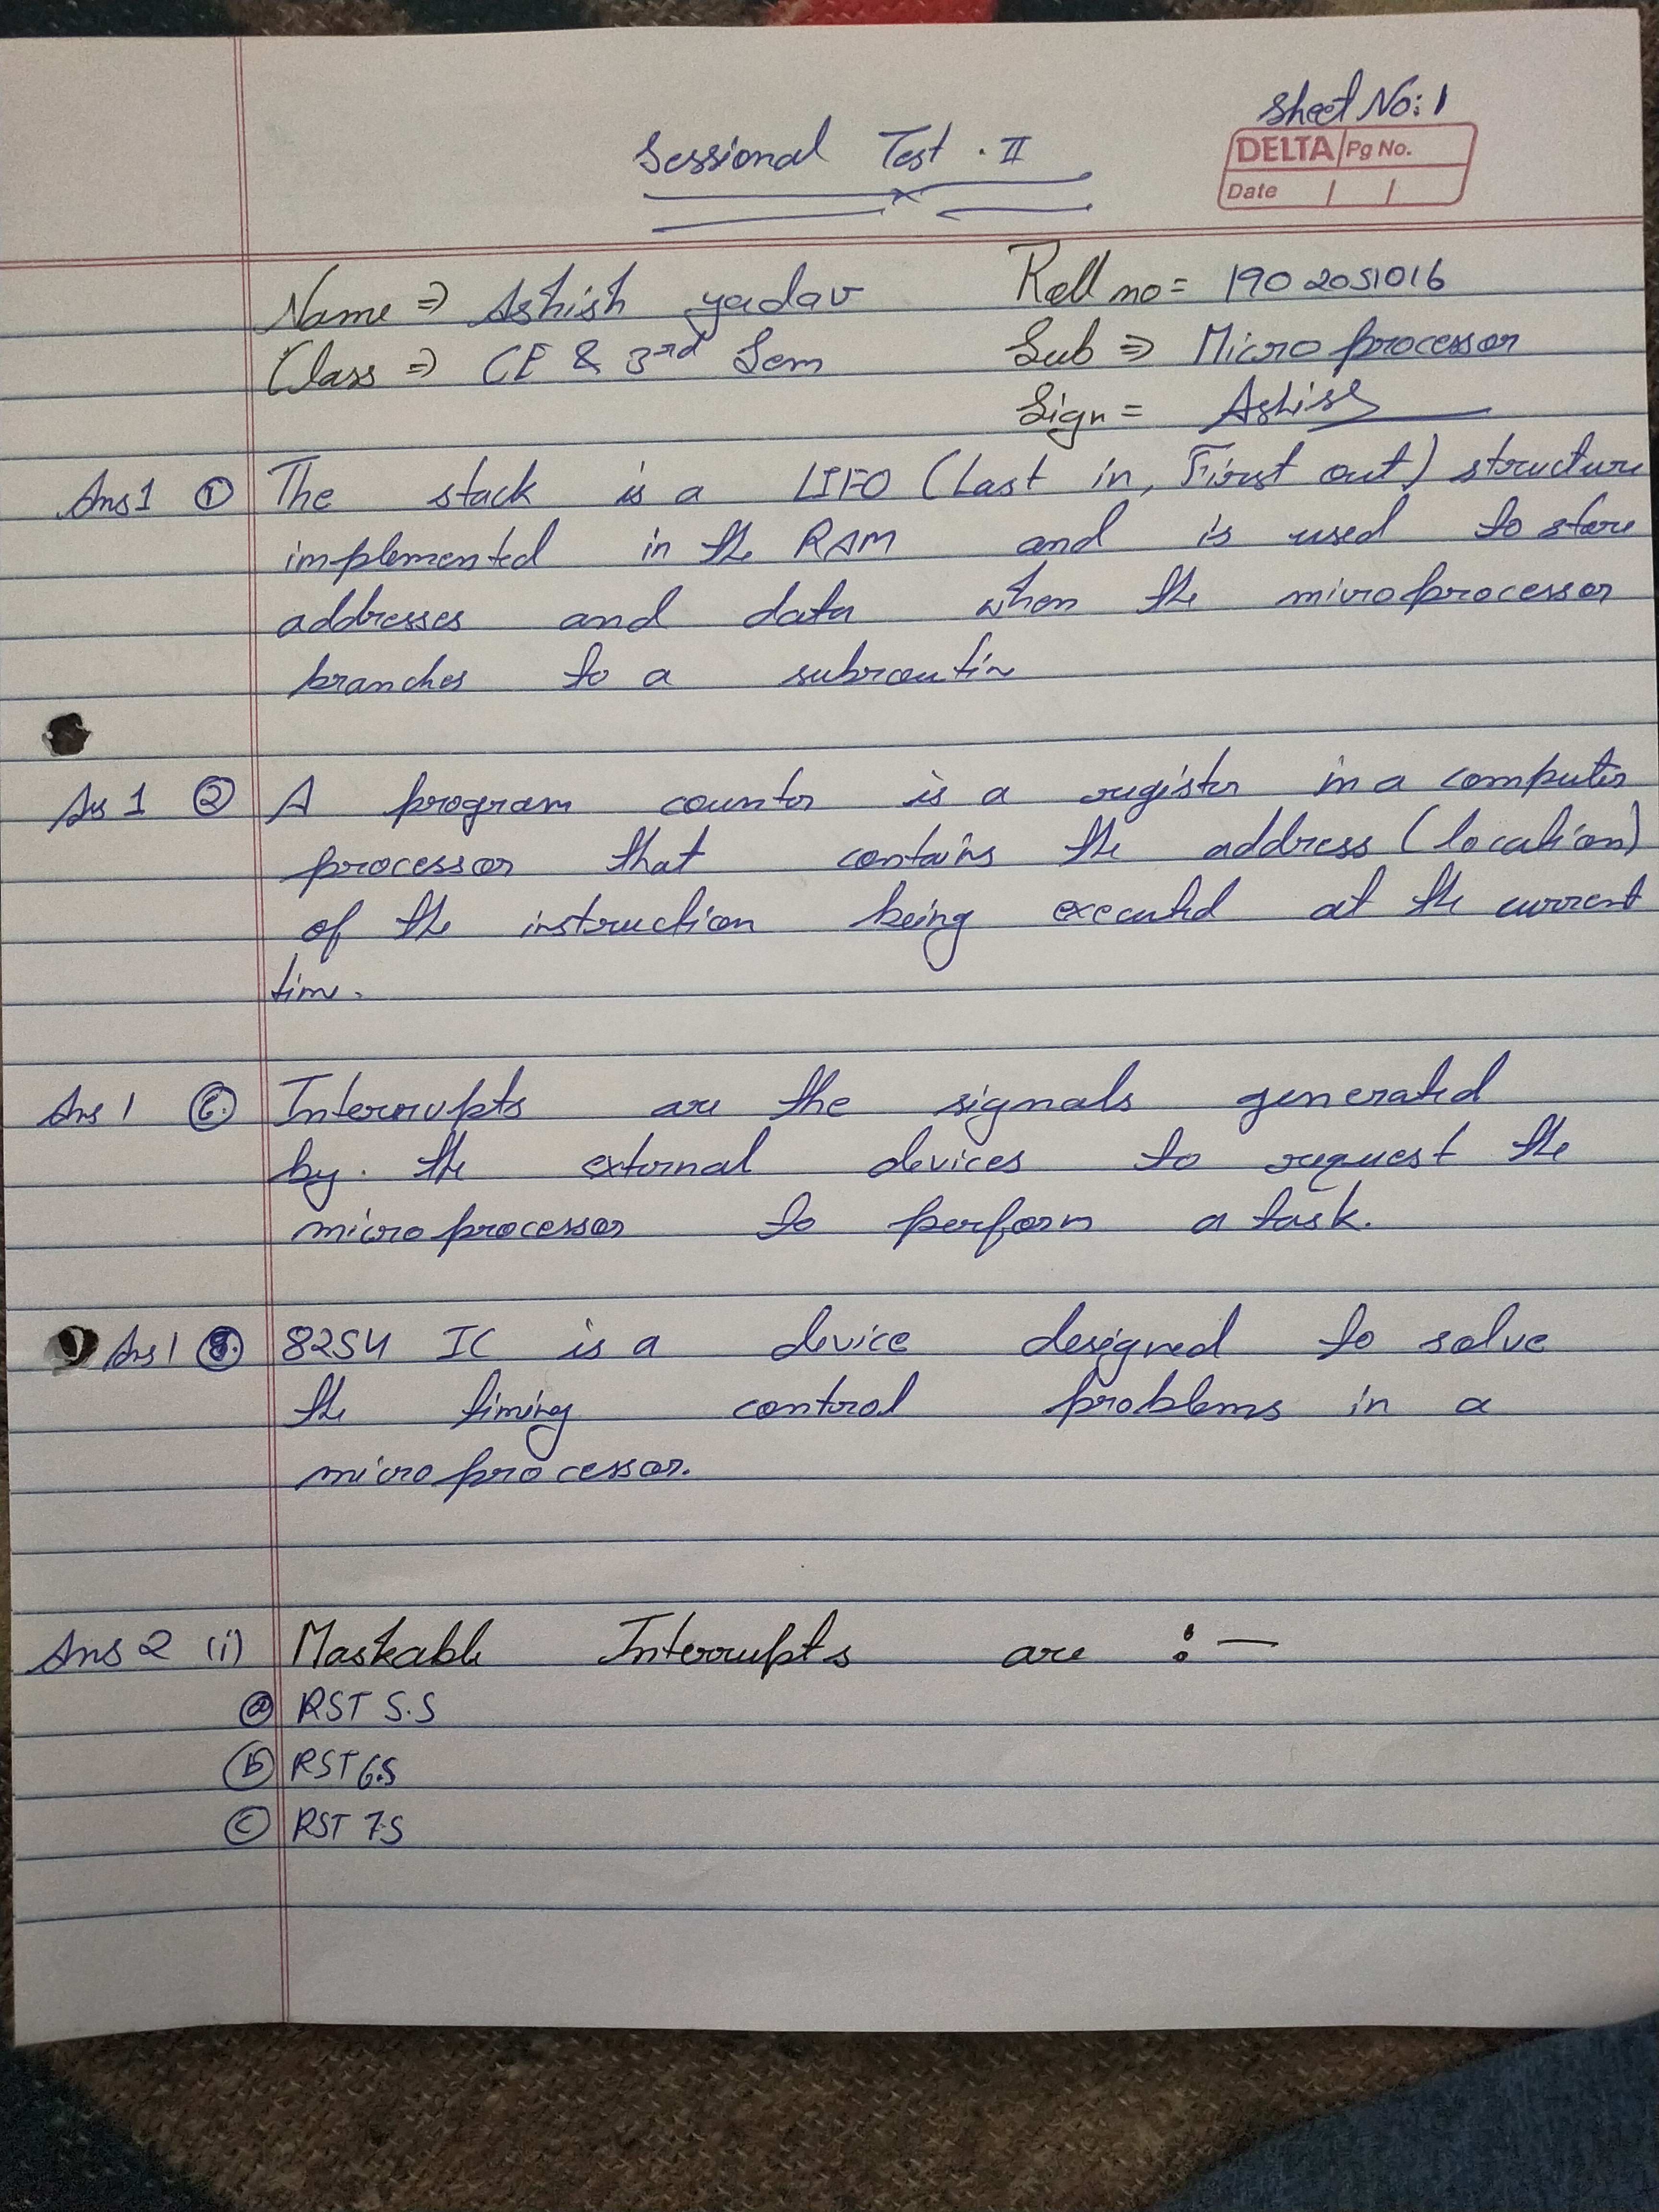 Sheet No: 1
DELTA Pg No.
Date / /
Sessional Test - II
Name ⇒ Ashish yadav Roll no = 1902051016
Class ⇒ CE & 3rd Sem Sub ⇒ Microprocessor
Sign = Ashish
Ans 1 ① The stack is a LIFO (Last in, First out) structure
implemented in the RAM and is used to store
addresses and data when the microprocessor
branches to a subroutin
Ans 1 ② A program counter is a register in a computer
processor that contains the address (location)
of the instruction being executed at the current
time.
Ans 1 ⑥ Interrupts are the signals generated
by the external devices to request the
microprocessor to perform a task.
Ans 1 ⑧ 8254 IC is a device designed to solve
the timing control problems in a
microprocessor.
Ans 2 (i) Maskable Interrupts are :—
ⓐ RST 5.5
ⓑ RST 6.5
ⓒ RST 7.5